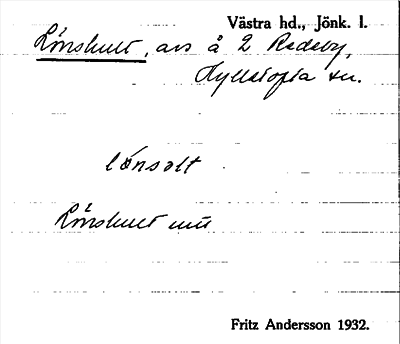 Västra hd., Jönk. l.
Lönshult, avs å 2 Redeby,
Hylletofta sn.
lónsolt
Lönshult uttt
Fritz Andersson 1932.